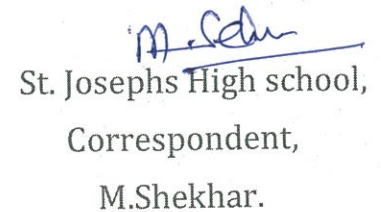 St. Josephs High school,
Correspondent,
M.Shekhar.